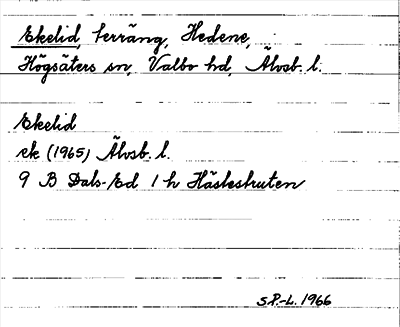 Ekelid, terräng, Hedene,
Högsäters sn, Valbo hd, Älvsb. l.
Ekelid
ek (1965) Älvsb. l.
9 B Dals-Ed 1 h Hästeskruten
S.P.-L. 1966